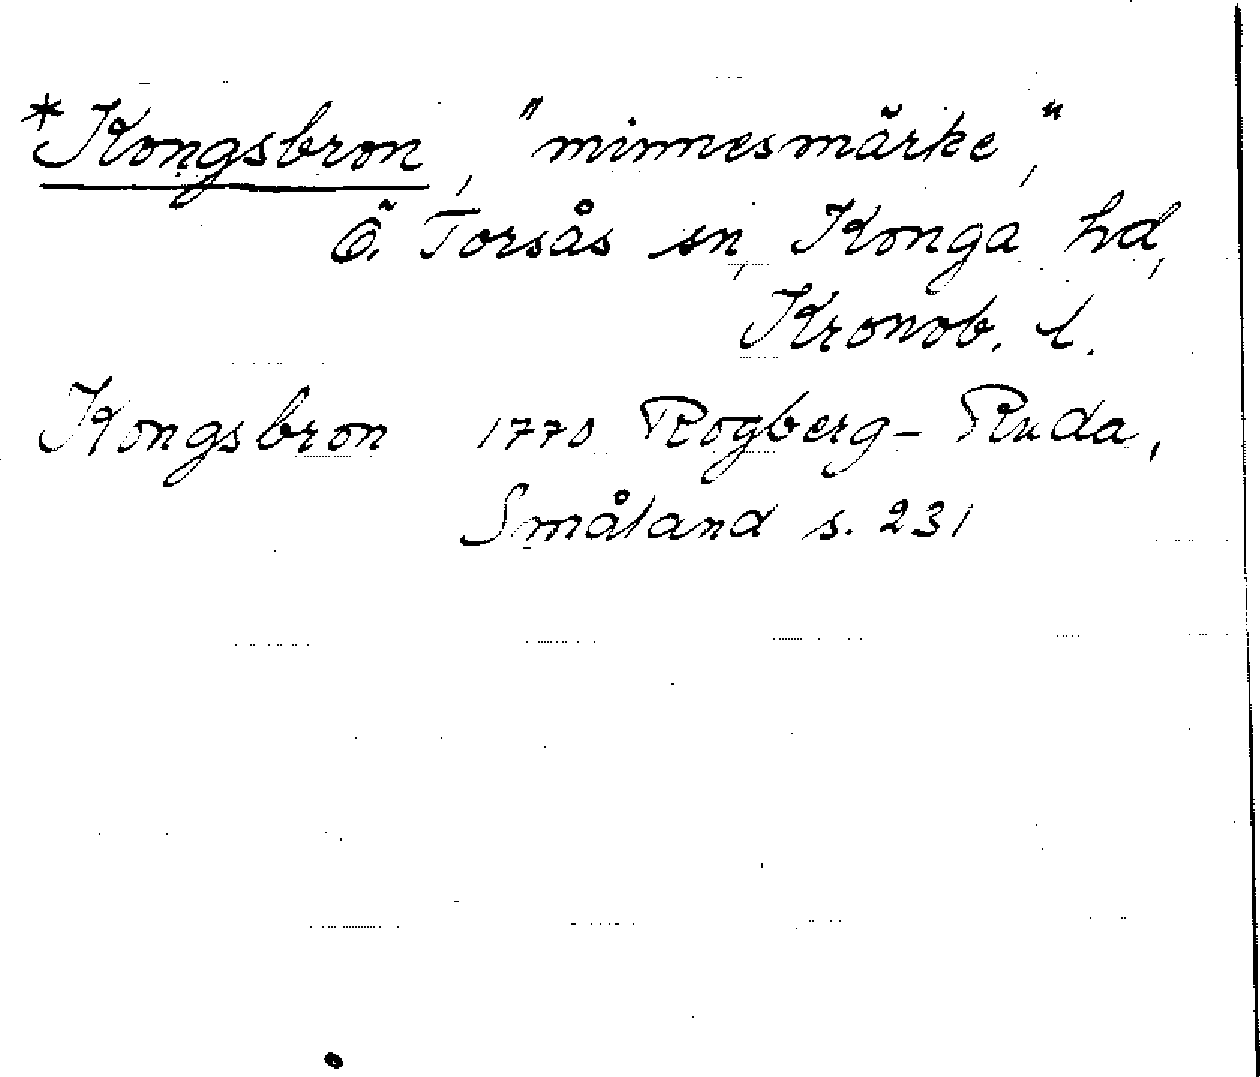 *Kongsbron, "minnesmärke",
Ö. Torsås sn, Konga hd,
Kronob. l.
Kongsbron 1770 Rogberg-Ruda,
Småland s. 231